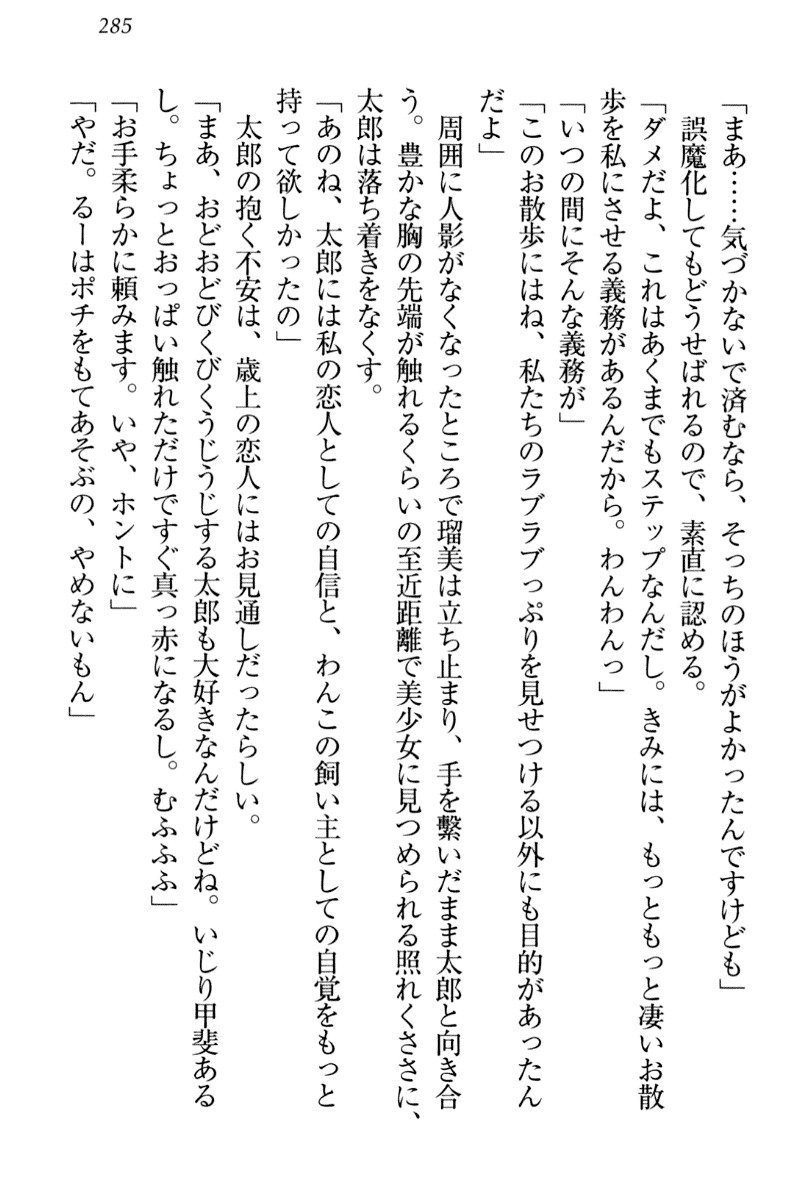 285
「まあ……気づかないで済むなら、そっちのほうがよかったんですけども」
誤魔化してもどうせばれるので、素直に認める。
「ダメだよ、これはあくまでもステップなんだし。きみには、もっともっと凄いお散
歩を私にさせる義務があるんだから。わんわんっ」
「いつの間にそんな義務が」
「このお散歩にはね、私たちのラブラブっぷりを見せつける以外にも目的があったん
だよ」
周囲に人影がなくなったところで瑠美は立ち止まり、手を繋いだまま太郎と向き合
う。豊かな胸の先端が触れるくらいの至近距離で美少女に見つめられる照れくささに、
太郎は落ち着きをなくす。
「あのね、太郎には私の恋人としての自信と、わんこの飼い主としての自覚をもっと
持って欲しかったの」
太郎の抱く不安は、歳上の恋人にはお見通しだったらしい。
「まあ、おどおどびくびくうじうじする太郎も大好きなんだけどね。いじり甲斐ある
し。ちょっとおっぱい触れただけですぐ真っ赤になるし。むふふふ」
「お手柔らかに頼みます。いや、ホントに」
「やだ。るーはポチをもてあそぶの、やめないもん」